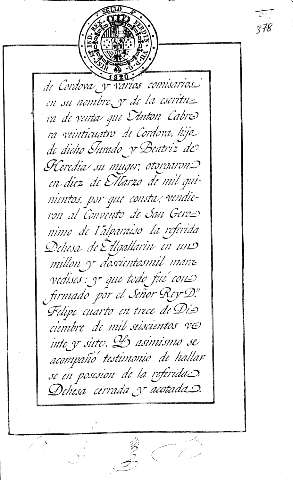 378
1820
de Cordova y varios comisarios
en su nombre, y de la escritu-
ra de venta que Anton Cabre
ra veinticuatro de Cordova, hijo
de dicho Parado y Beatriz de
Heredia su muger, otorgaron
en diez de Marzo de mil qui-
nientos, por que consta, vendie
ron al Convento de San Gero
nimo de Valparaiso la referida
Dehesa de el Gallarin en un
millon y doscientos mil mara
vedises: y que todo fué con
firmado por el Señor Rey Dn.
Felipe cuarto en trece de Di
ciembre de mil seiscientos ve
inte y siete. Y asimismo se
acompañó testimonio de hallar
se en posesion de la referida
Dehesa cerrada y acotada